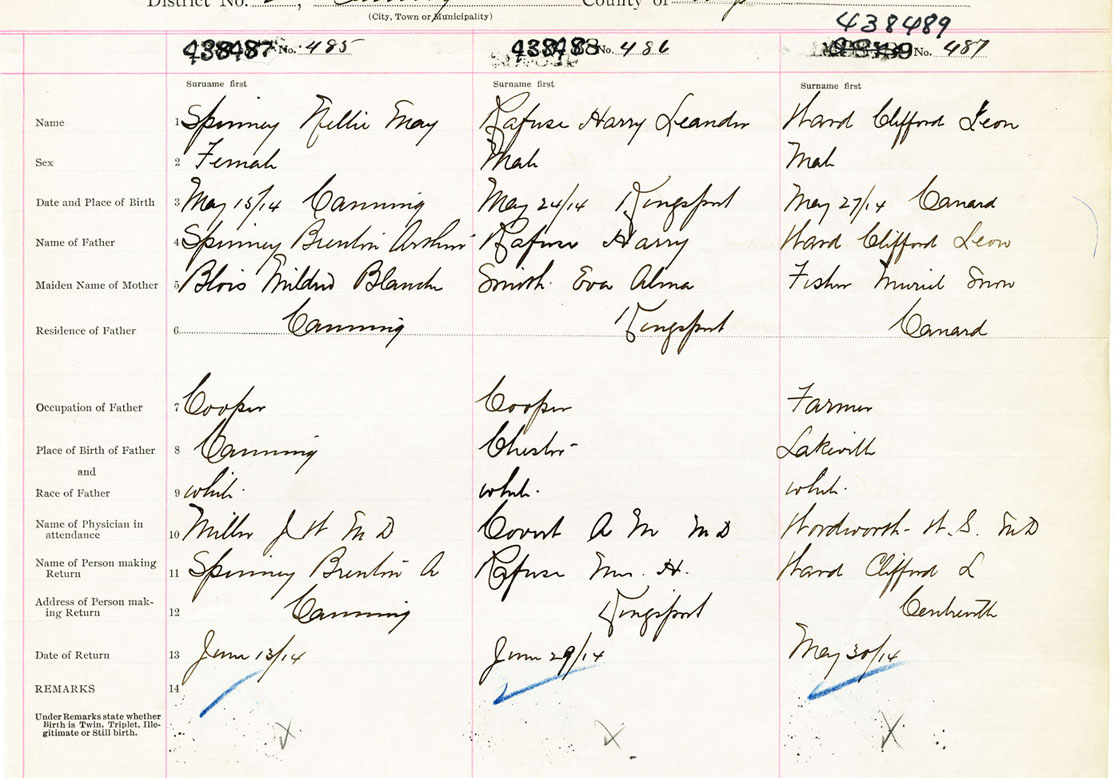 District No. County of
(City, Town or Municipality)
438489
438487 No. 485 438488 No. 486 No. 487
Surname first Surname first Surname first
Name 1 Spinney Nellie May Rafuse Harry Leander Ward Clifford Leon
Sex 2 Female Male Male
Date and Place of Birth 3 May 15/14 Canning May 24/14 Kingsport May 27/14 Canard
Name of Father 4 Spinney Brenton Arthur Rafuse Harry Ward Clifford Leon
Maiden Name of Mother 5 Blois Mildred Blanche Smith Eva Alma Fisher Muriel Snow
Residence of Father 6 Canning Kingsport Canard
Occupation of Father 7 Cooper Cooper Farmer
Place of Birth of Father 8 Canning Chester Lakeville
and
Race of Father 9 white white white
Name of Physician in
attendance 10 Miller J W M D Covert A M M D Wordworth W. S. M D
Name of Person making
Return 11 Spinney Brenton A Rafuse Mrs. H. Ward Clifford L
Address of Person mak-
ing Return 12 Canning Kingsport
Date of Return 13 June 13/14 June 29/14 May 30/14
REMARKS 14
Under Remarks state whether
Birth is Twin, Triplet, Ille-
gitimate or Still-birth.